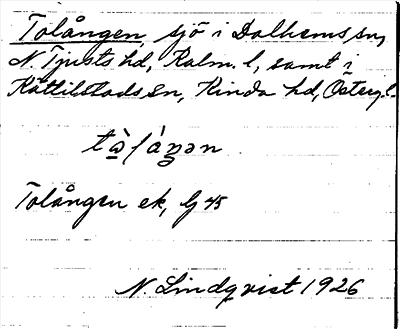 Tolången, sjö i Dalhems sn,
N. Tjusts hd, Kalm. l, samt i
Kättilstads sn, Kinda hd, Österg. l.
Tolången ek, G 45
N. Lindqvist 1926